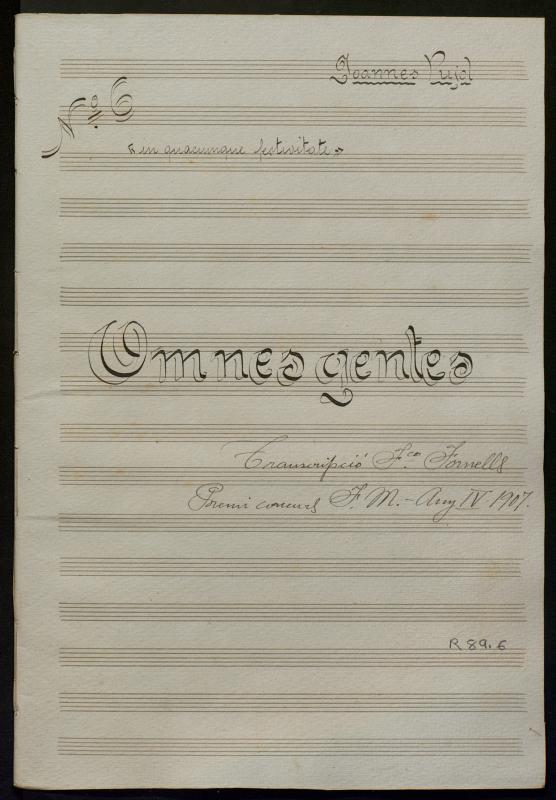 Joannes Pujol
Nº 6
«in quacumque festivitate»
Omnes gentes
Transcripció F.co Fornells
Premi concurs F. M. - Any IV 1907.
R 89.6